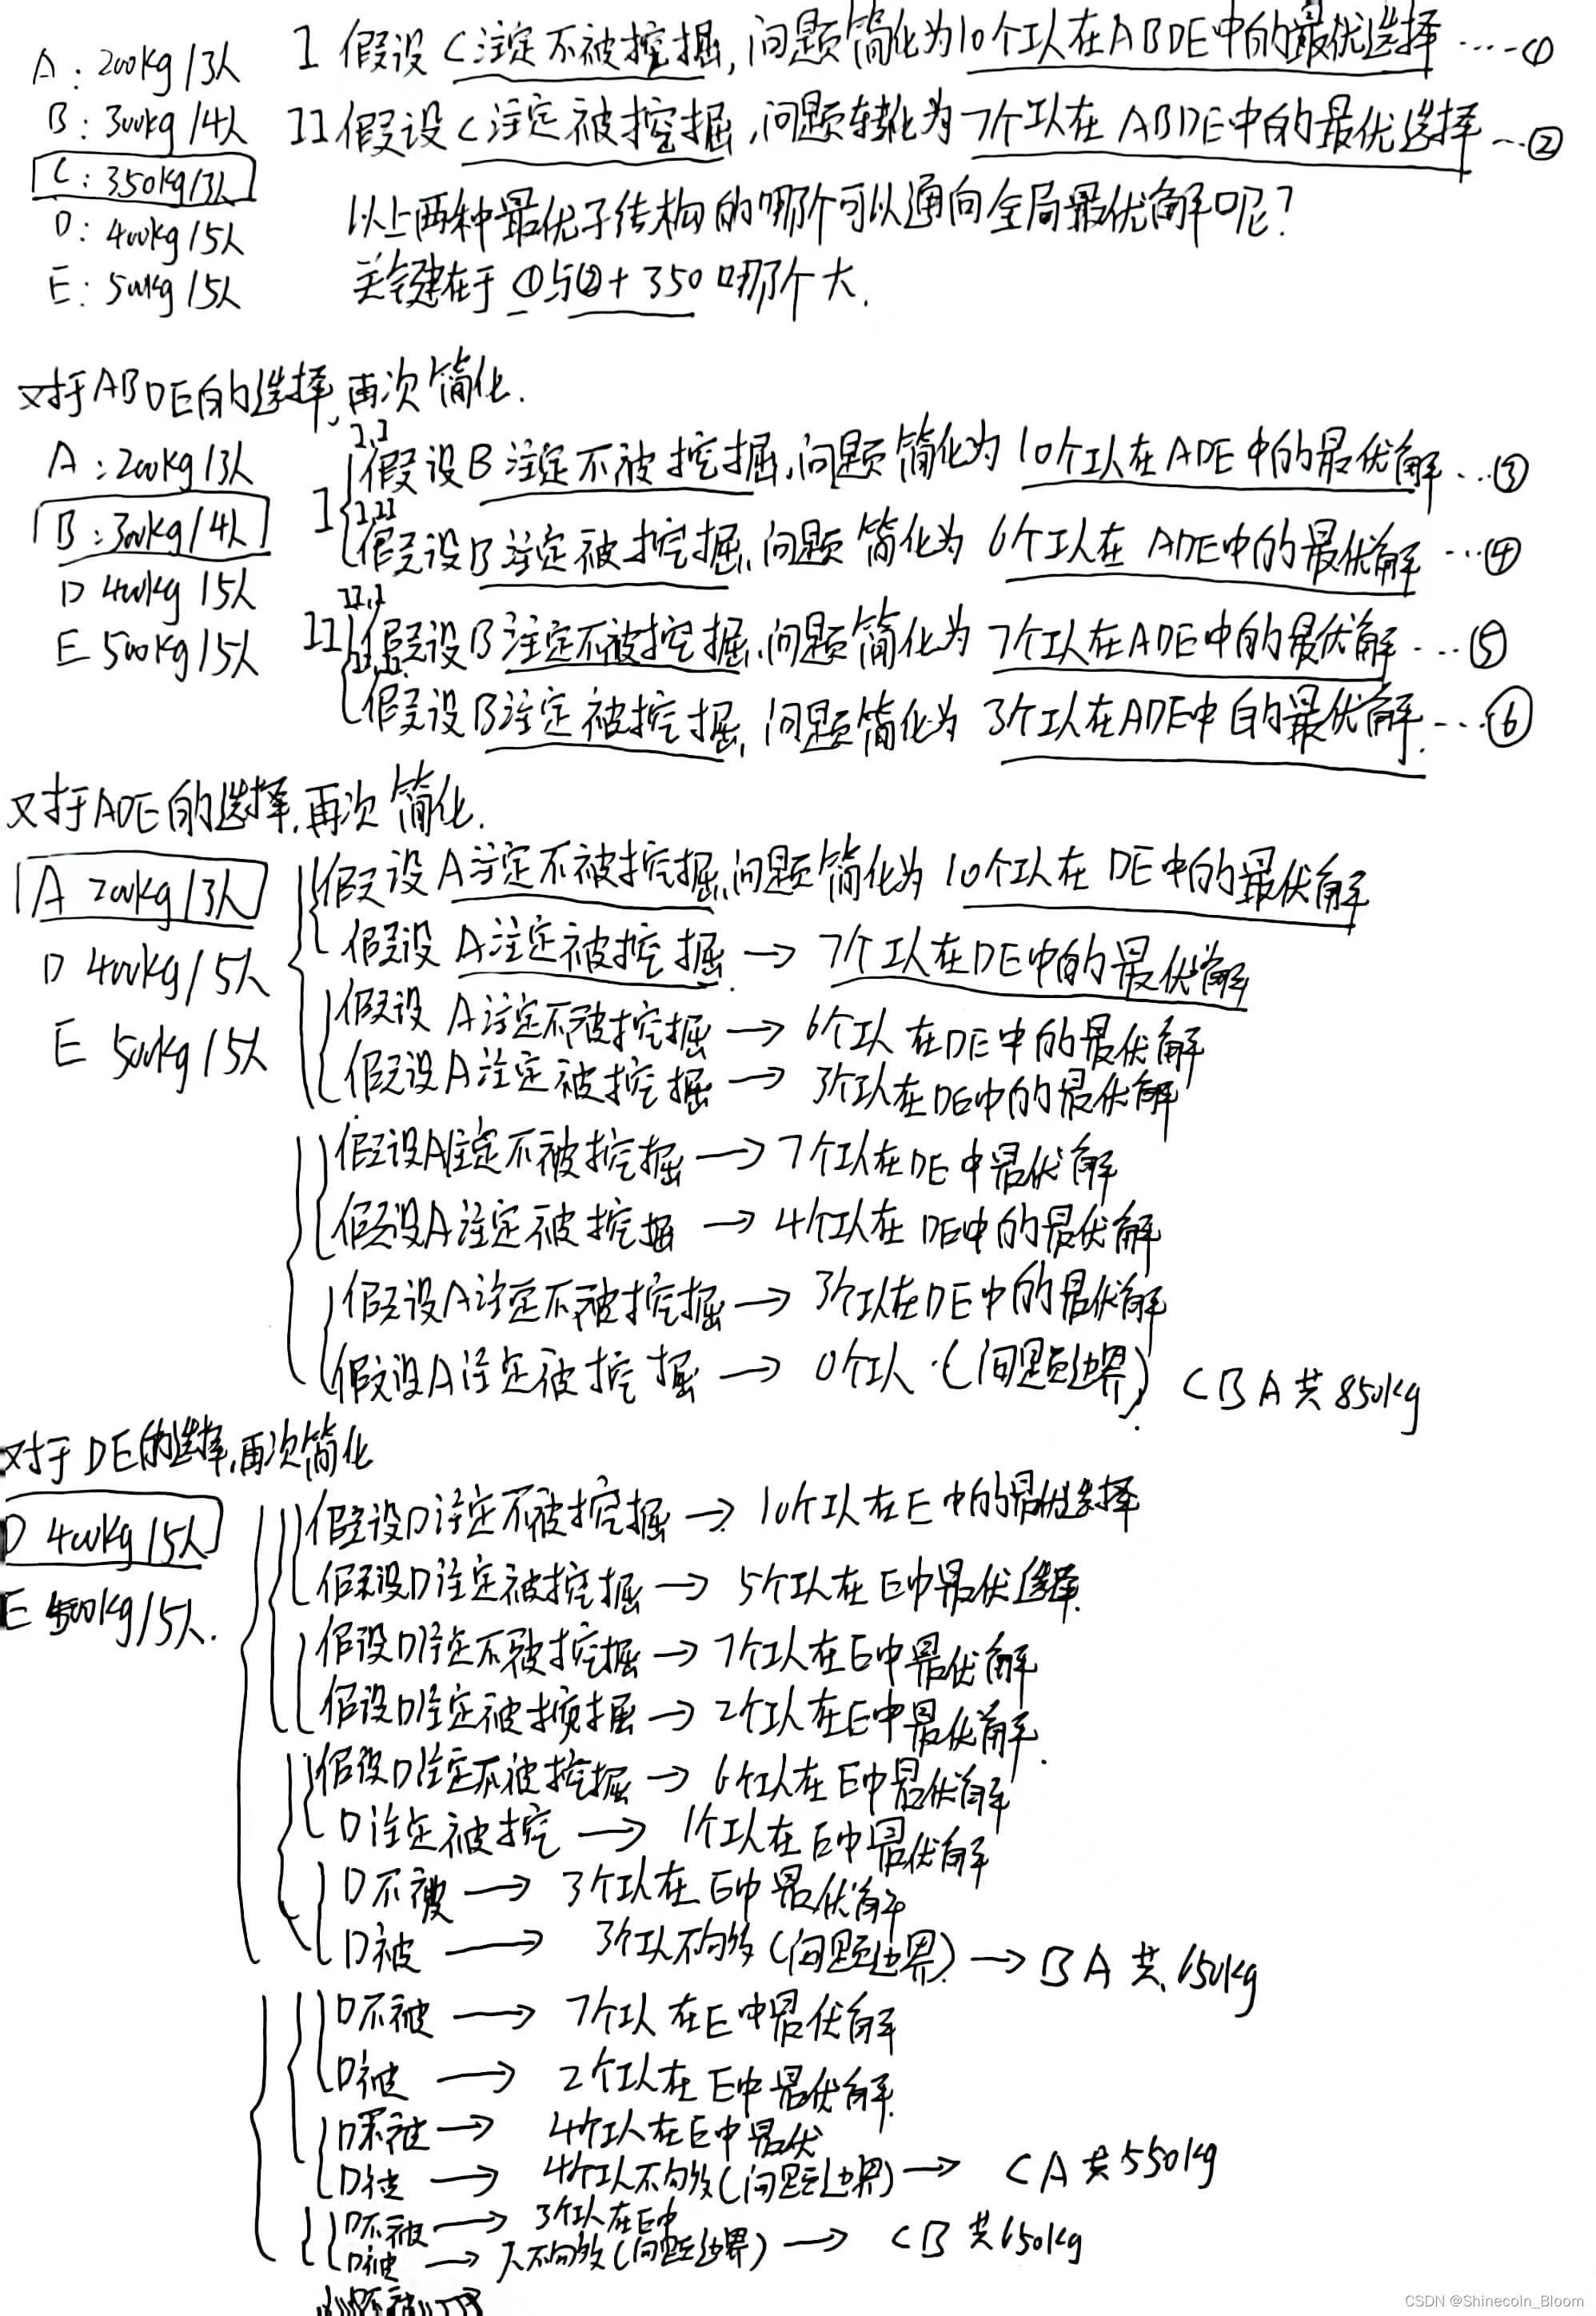 A：200kg/3人
B：300kg/4人
C：350kg/3人
D：400kg/5人
E：500kg/5人
I 假设C注定不被挖掘，问题简化为10个工人在ABDE中的最优选择 ……①
II 假设C注定被挖掘，问题转化为7个工人在ABDE中的最优选择 …②
以上两种最优子结构的哪个可以通向全局最优解呢？
关键在于①与②+350哪个大.
对于ABDE的选择，再次简化.
A：200kg/3人
B：300kg/4人
D 400kg/5人
E 500kg/5人
I
I,I 假设B注定不被挖掘，问题简化为10个工人在ADE中的最优解 …③
I,II 假设B注定被挖掘，问题简化为6个工人在ADE中的最优解 …④
II
II,I 假设B注定不被挖掘，问题简化为7个工人在ADE中的最优解 …⑤
假设B注定被挖掘，问题简化为3个工人在ADE中的最优解. …⑥
对于ADE的选择，再次简化.
A 200kg/3人
D 400kg/5人
E 500kg/5人
假设A注定不被挖掘，问题简化为10个工人在DE中的最优解
假设A注定被挖掘 → 7个工人在DE中的最优解
假设A注定不被挖掘 → 6个工人在DE中的最优解
假设A注定被挖掘 → 3个工人在DE中的最优解
假设A注定不被挖掘 → 7个工人在DE中最优解
假设A注定被挖掘 → 4个工人在DE中的最优解
假设A注定不被挖掘 → 3个工人在DE中的最优解
假设A注定被挖掘 → 0个工人.(问题边界) CBA共850kg
对于DE的选择，再次简化
D 400kg/5人
E 500kg/5人.
假设D注定不被挖掘 → 10个工人在E中的最优选择
假设D注定被挖掘 → 5个工人在E中最优选择.
假设D注定不被挖掘 → 7个工人在E中最优解
假设D注定被挖掘 → 2个工人在E中最优解.
假设D注定不被挖掘 → 6个工人在E中最优解
D注定被挖 → 1个工人在E中最优解
D不被 → 3个工人在E中最优解
D被 → 3个工人不够(问题边界) → BA共650kg
D不被 → 7个工人在E中最优解
D被 → 2个工人在E中最优解.
D不被 → 4个工人在E中最优
D被 → 4个工人不够(问题边界) → CA共550kg
D不被 → 3个工人在E中
D被 → 人不够(问题边界) → CB共650kg
CSDN @Shinecoln_Bloom